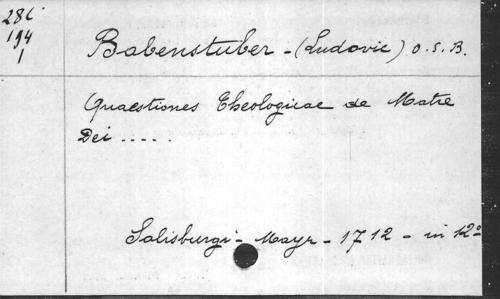 286
194
1
Babenstuber - (Ludovic) O.S.B.
Quaestiones Theologicae de Matre
Dei .....
Salisburgi - Mayr - 1712 - in 12º